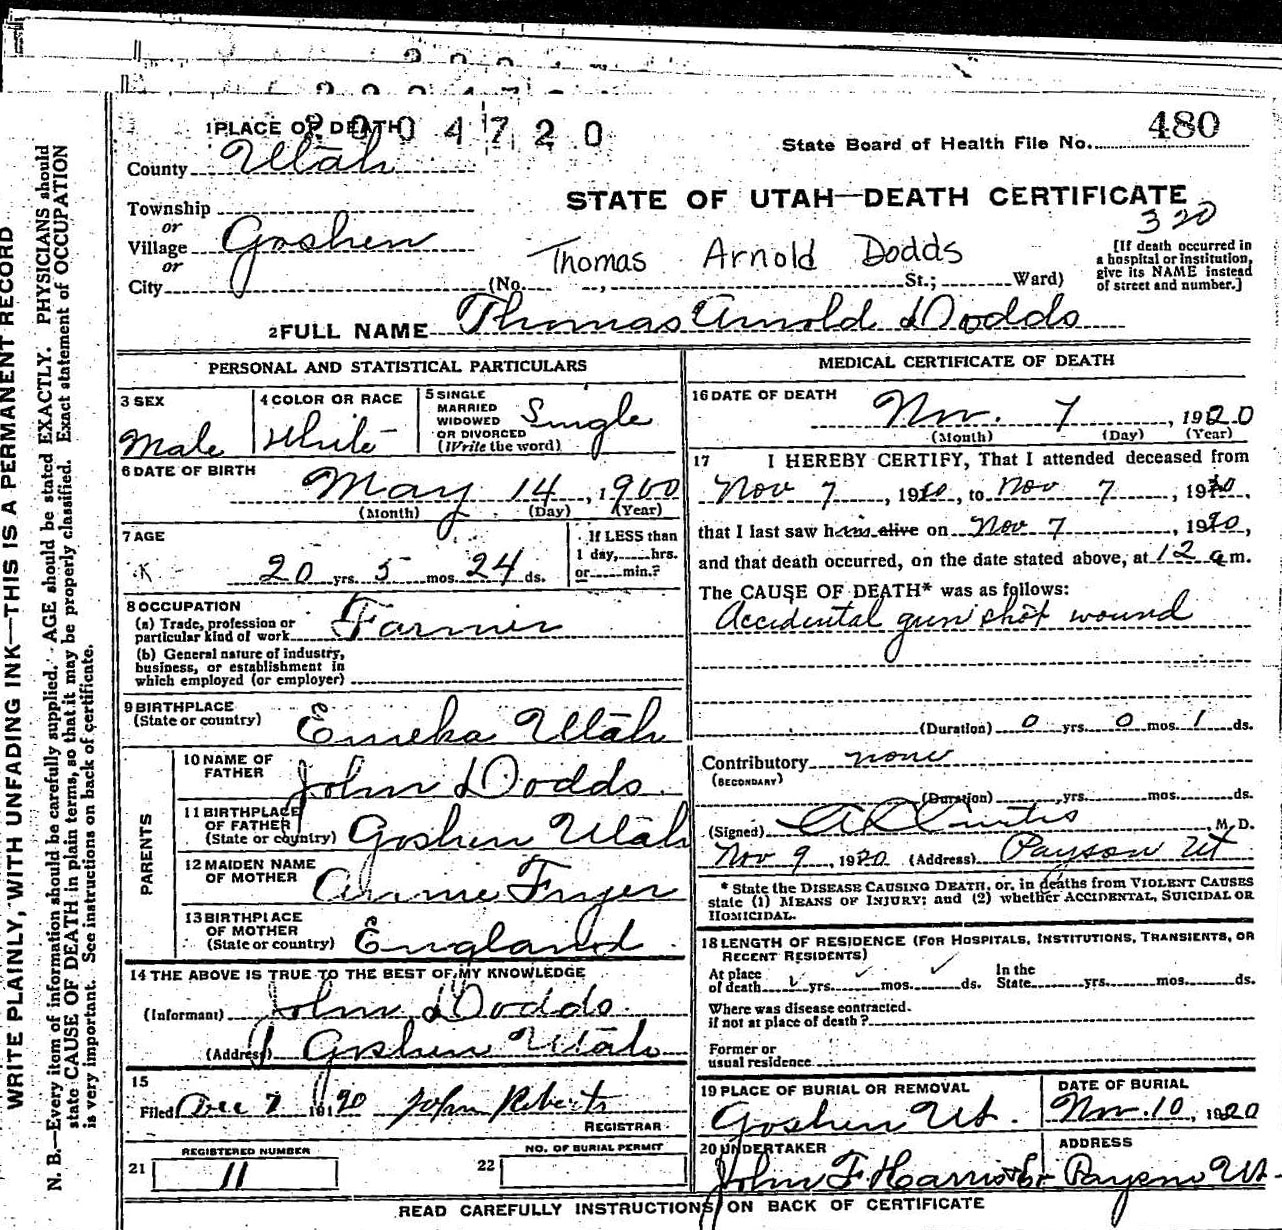 1 PLACE OF DEATH 2004720
State Board of Health File No. 480
County Utah
STATE OF UTAH—DEATH CERTIFICATE
320
Township
or
Village Goshen
or
City
Thomas Arnold Dodds
(No. , St.; Ward)
[If death occurred in
a hospital or institution,
give its NAME instead
of street and number.]
2 FULL NAME Thomas Arnold Dodds
PERSONAL AND STATISTICAL PARTICULARS
3 SEX
Male
4 COLOR OR RACE
White
5 SINGLE
MARRIED
WIDOWED
OR DIVORCED
(Write the word)
Single
6 DATE OF BIRTH
May 14, 1900
(Month) (Day) (Year)
7 AGE
20 yrs. 5 mos. 24 ds.
If LESS than
1 day, hrs.
or min.?
8 OCCUPATION
(a) Trade, profession or
particular kind of work Farmer
(b) General nature of industry,
business, or establishment in
which employed (or employer)
9 BIRTHPLACE
(State or country) Eureka Utah
PARENTS
10 NAME OF
FATHER John Dodds
11 BIRTHPLACE
OF FATHER
(State or country) Goshen Utah
12 MAIDEN NAME
OF MOTHER Fryer
13 BIRTHPLACE
OF MOTHER
(State or country) England
14 THE ABOVE IS TRUE TO THE BEST OF MY KNOWLEDGE
(Informant) John Dodds
(Address) Goshen Utah
15
Filed Dec 7 1920 John Roberts
REGISTRAR
REGISTERED NUMBER
21 11
NO. OF BURIAL PERMIT
22
MEDICAL CERTIFICATE OF DEATH
16 DATE OF DEATH
Nov. 7, 1920
(Month) (Day) (Year)
17 I HEREBY CERTIFY, That I attended deceased from
Nov 7, 1920, to Nov 7, 1920,
that I last saw him alive on Nov 7, 1920,
and that death occurred, on the date stated above, at 12 a m.
The CAUSE OF DEATH* was as follows:
Accidental gun shot wound
(Duration) 0 yrs. 0 mos. 1 ds.
Contributory none
(SECONDARY)
(Duration) yrs. mos. ds.
(Signed) Curtis M. D.
Nov 9, 1920 (Address) Payson Ut
* State the DISEASE CAUSING DEATH, or, in deaths from VIOLENT CAUSES
state (1) MEANS OF INJURY; and (2) whether ACCIDENTAL, SUICIDAL OR
HOMICIDAL.
18 LENGTH OF RESIDENCE (FOR HOSPITALS, INSTITUTIONS, TRANSIENTS, OR
RECENT RESIDENTS)
At place
of death yrs. mos. ds.
In the
State yrs. mos. ds.
Where was disease contracted.
if not at place of death?
Former or
usual residence
19 PLACE OF BURIAL OR REMOVAL
Goshen Ut.
DATE OF BURIAL
Nov. 10, 1920
20 UNDERTAKER
John F
ADDRESS
Ut
READ CAREFULLY INSTRUCTIONS ON BACK OF CERTIFICATE
WRITE PLAINLY, WITH UNFADING INK—THIS IS A PERMANENT RECORD
N. B.—Every item of information should be carefully supplied. AGE should be stated EXACTLY. PHYSICIANS should
state CAUSE OF DEATH in plain terms, so that it may be properly classified. Exact statement of OCCUPATION
is very important. See instructions on back of certificate.